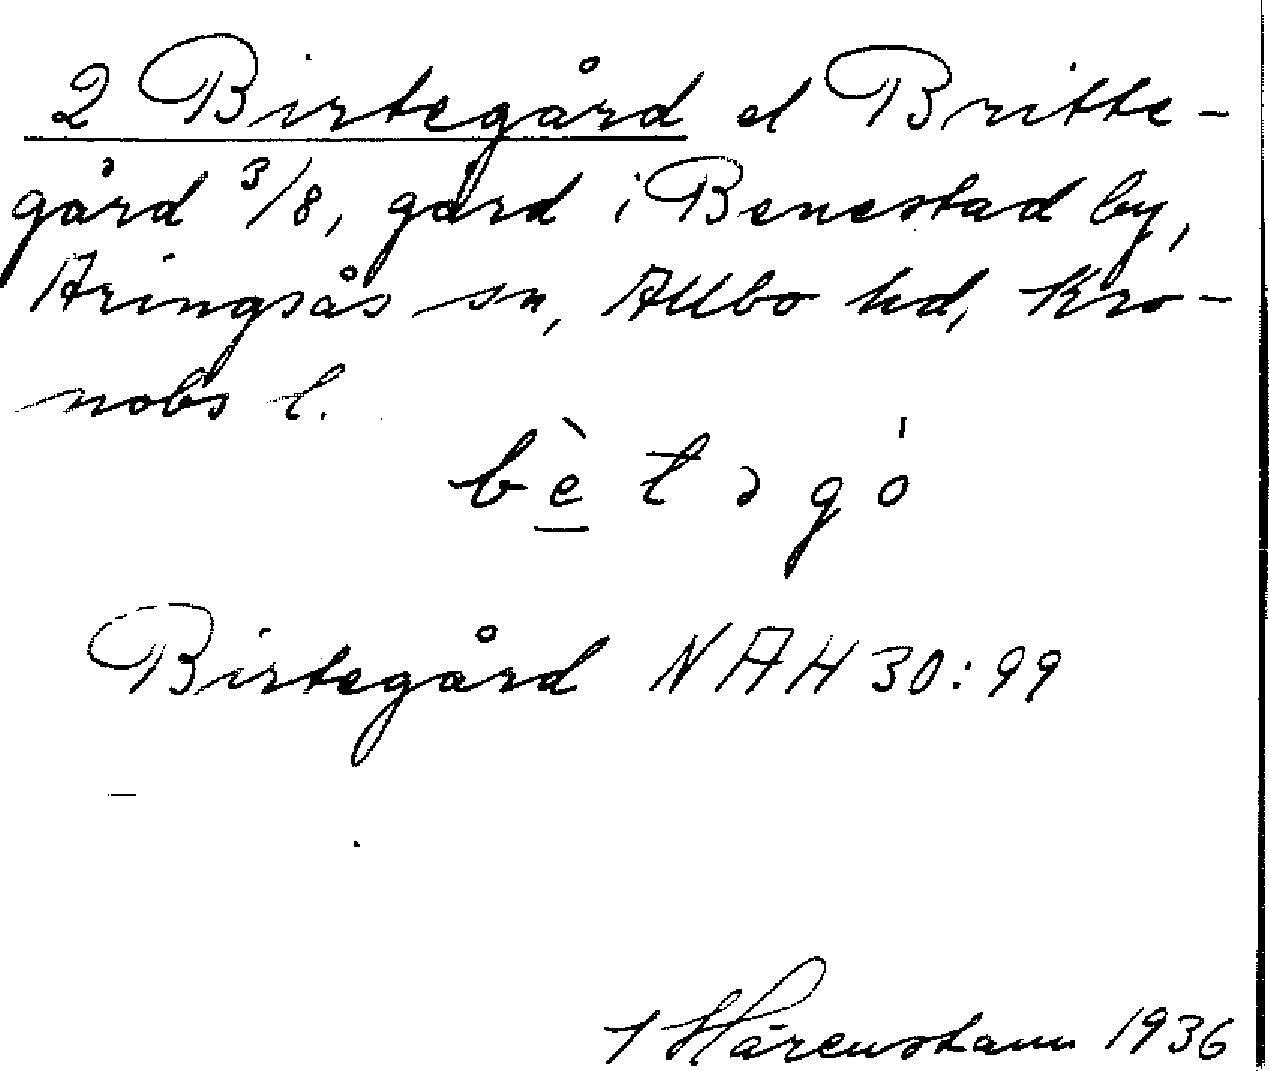 2 Birtegård el Britte-
gård 3/8, gård i Benestad by,
Aringsås sn, Allbo hd, Kro-
nobs l.
bètəgó
Birtegård NAH 30:99
Härenstam 1936